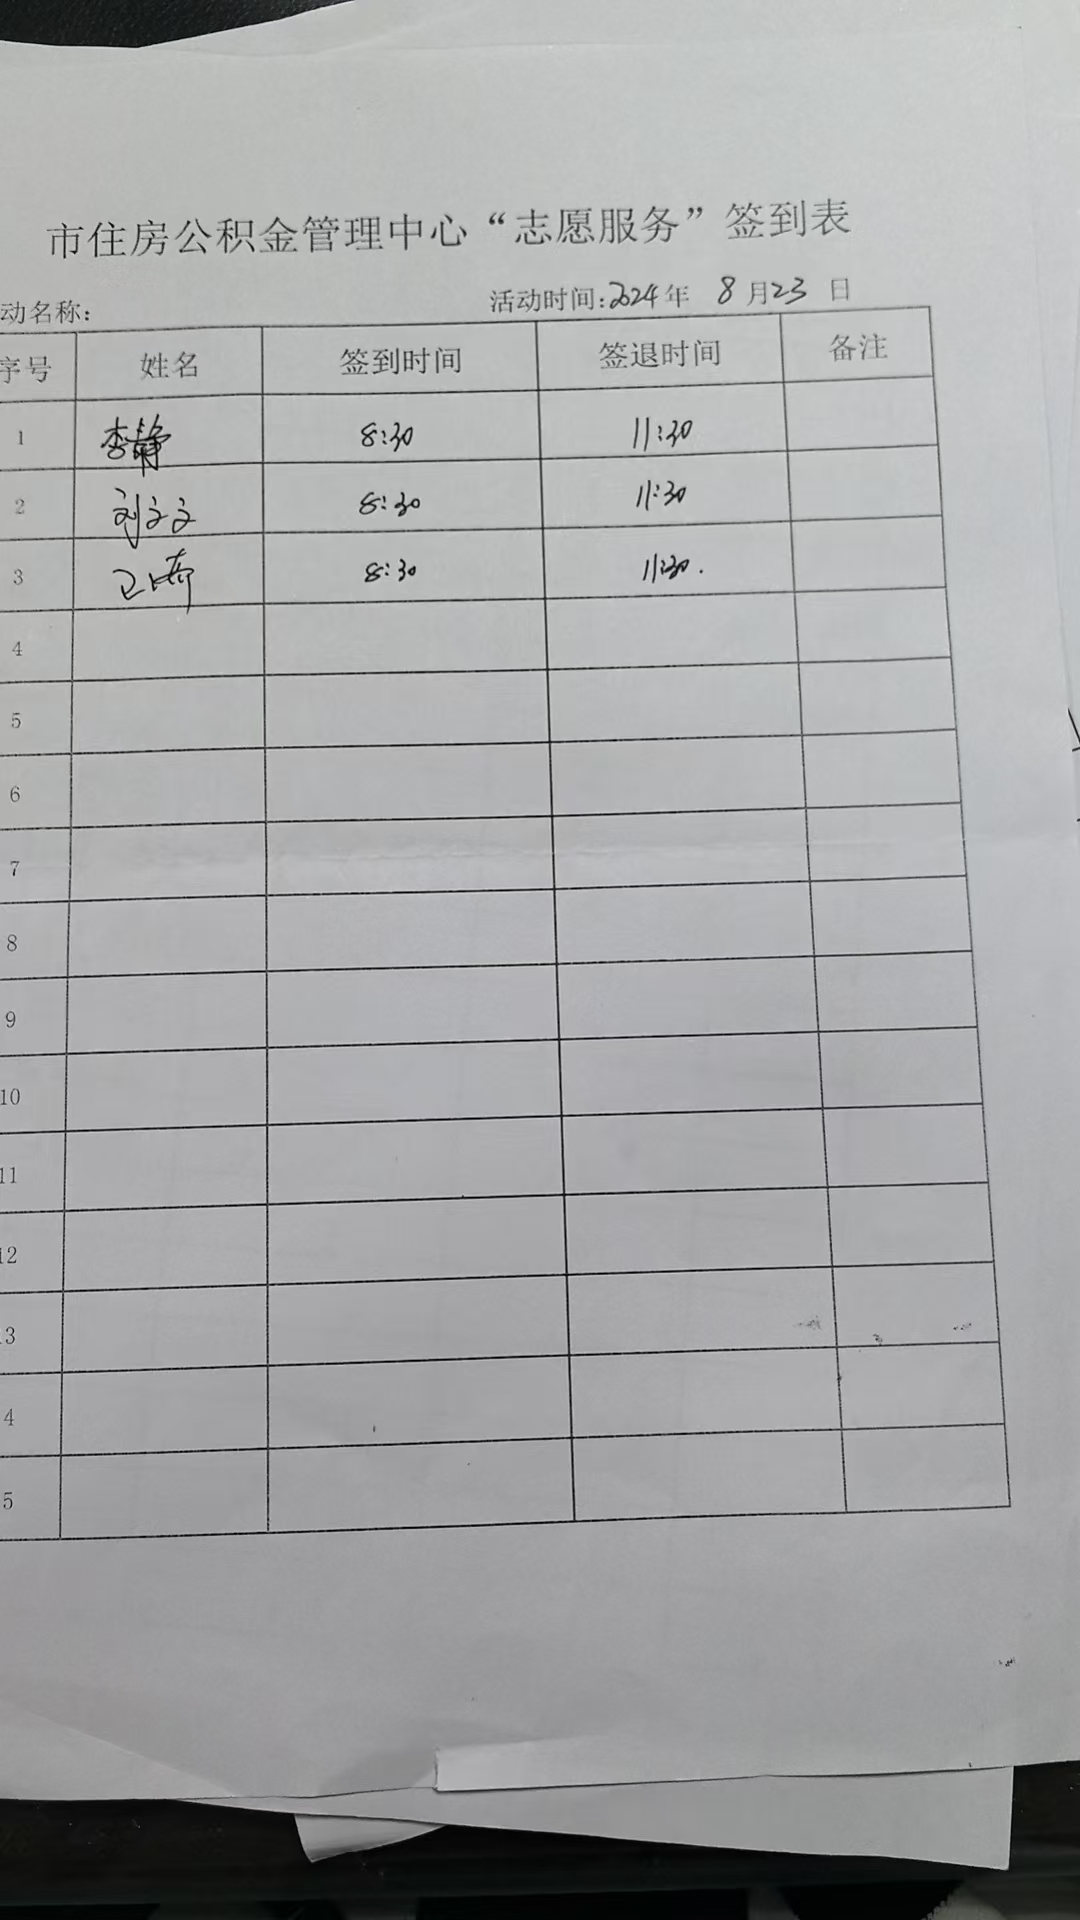 市住房公积金管理中心“志愿服务”签到表
动名称： 活动时间：2024年 8月23日
序号 姓名 签到时间 签退时间 备注
1 李静 8:30 11:30
2 刘文文 8:30 11:30
3 卫 8:30 11:30.
4
5
6
7
8
9
10
11
12
3
4
5